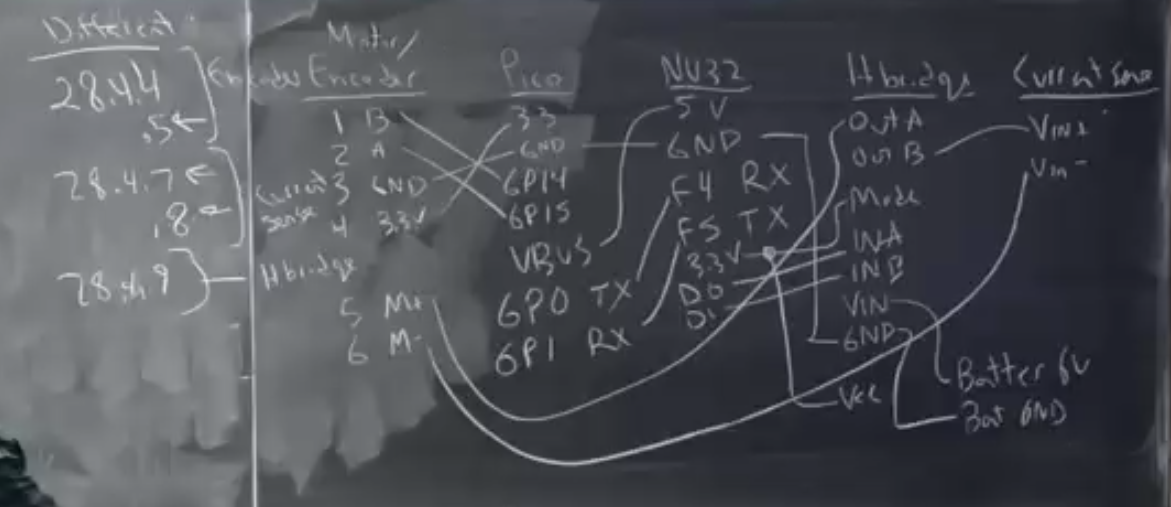 Different
28.4.4
.5
Encoder
28.4.7
.8
Current
sense
28.4.9
Hbridge
Motor/
Encoder
1 B
2 A
3 GND
4 3.3V
5 M+
6 M-
Pico
3.3
GND
GP14
GP15
VBUS
GP0 TX
GP1 RX
NU32
5V
GND
F4 RX
F5 TX
3.3V
D0
D1
Hbridge
Out A
Out B
Mode
INA
INB
VIN
GND
Vcc
Current sense
VIN+
Vin-
Batter 6V
Bat GND